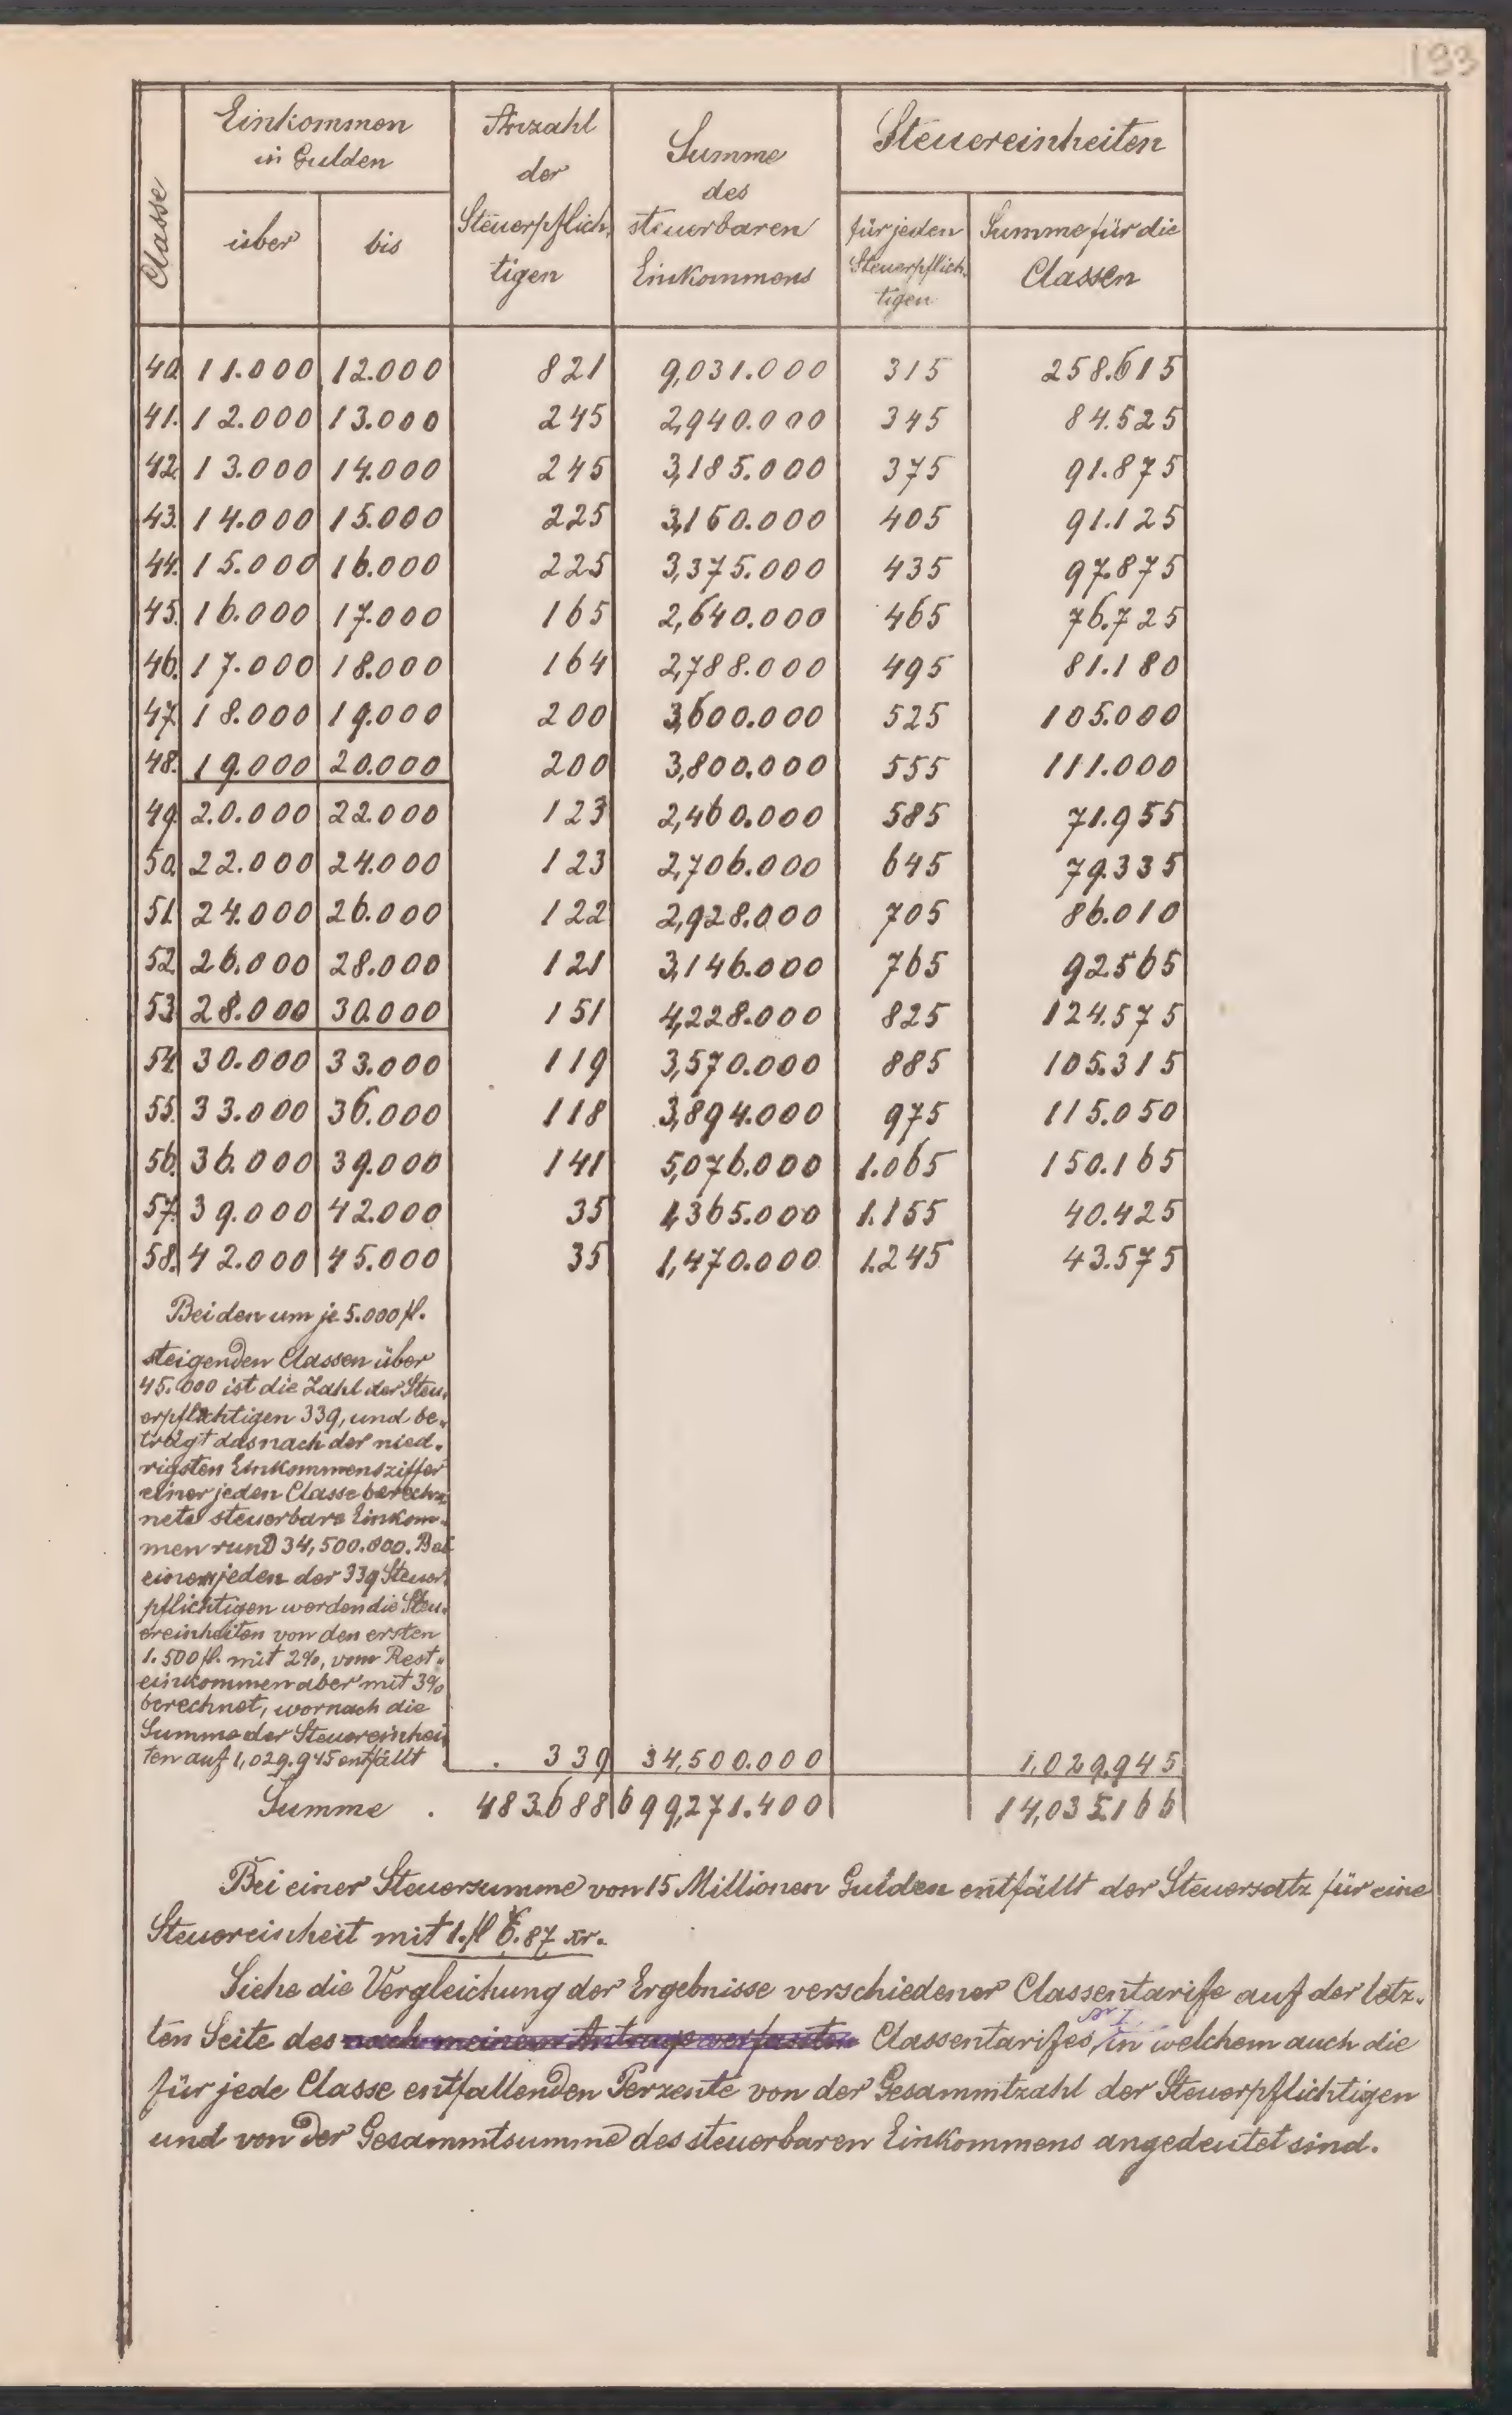 193
Classe
Einkommen
in Gulden
über
bis
Anzahl
der
Steuerpflich-
tigen
Summe
des
steuerbaren
Einkommens
Steuereinheiten
für jeden
Steuerpflich-
tigen
Summe für die
Classen
40. 11.000 12.000 821 9,031.000 315 258.615
41. 12.000 13.000 245 2,940.000 345 84.525
42. 13.000 14.000 245 3,185.000 375 91.875
43. 14.000 15.000 225 3,150.000 405 91.125
44. 15.000 16.000 225 3,375.000 435 97.875
45. 16.000 17.000 165 2,640.000 465 76.725
46. 17.000 18.000 164 2,788.000 495 81.180
47. 18.000 19.000 200 3,600.000 525 105.000
48. 19.000 20.000 200 3,800.000 555 111.000
49. 20.000 22.000 123 2,460.000 585 71.955
50. 22.000 24.000 123 2,706.000 645 79.335
51. 24.000 26.000 122 2,928.000 705 86.010
52. 26.000 28.000 121 3,146.000 765 92565
53. 28.000 30.000 151 4,228.000 825 124.575
54. 30.000 33.000 119 3,570.000 885 105.315
55. 33.000 36.000 118 3,894.000 975 115.050
56. 36.000 39.000 141 5,076.000 1.065 150.165
57. 39.000 42.000 35 1,365.000 1.155 40.425
58. 42.000 45.000 35 1,470.000 1.245 43.575
Bei den um je 5.000 fl.
steigenden Classen über
45.000 ist die Zahl der Steu-
erpflichtigen 339, und be-
trägt das nach der nied-
rigsten Einkommensziffer
einer jeden Classe berech-
nete steuerbare Einkom-
men rund 34,500.000. Bei
einem jeden der 339 Steuer-
pflichtigen werden die Steu-
ereinheiten von den ersten
1.500 fl. mit 2%, vom Rest-
einkommen aber mit 3%
berechnet, wornach die
Summe der Steuereinhei-
ten auf 1,029.945 entfällt . 339 34,500.000 1,029.945
Summe . 483.688 699,271.400 14,035.166
Bei einer Steuersumme von 15 Millionen Gulden entfällt der Steuersatz für eine
Steuereinheit mit 1. fl 6.87 xr.
Siehe die Vergleichung der Ergebnisse verschiedener Classentarife auf der letz-
ten Seite des nach meinem Antrage verfassten Classentarifes, in welchem auch die
für jede Classe entfallenden Perzente von der Gesammtzahl der Steuerpflichtigen
und von der Gesammtsumme des steuerbaren Einkommens angedeutet sind.